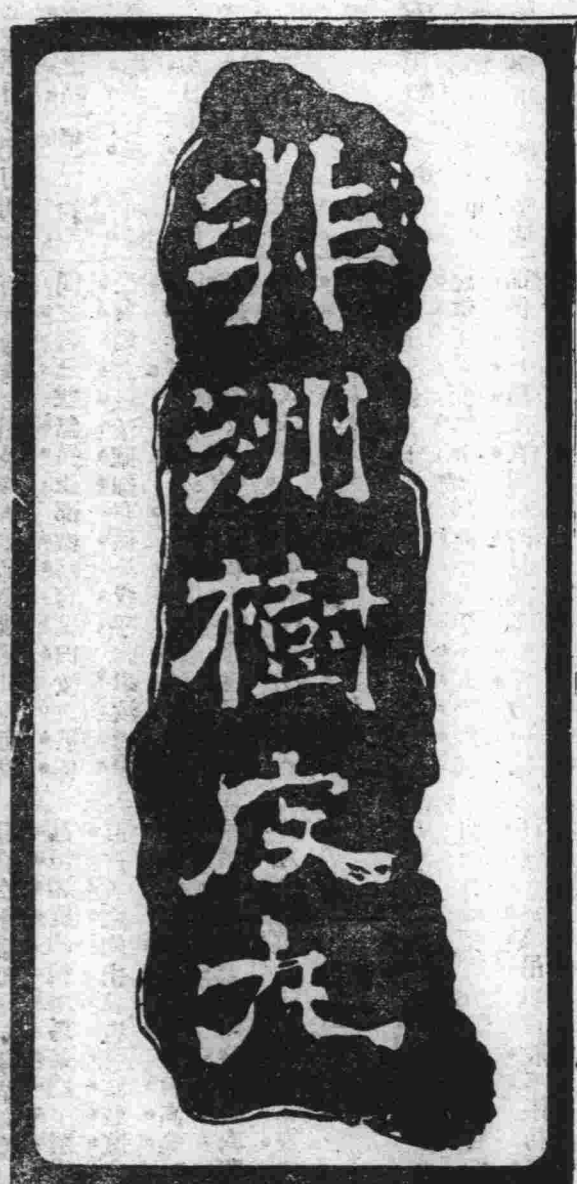 非洲樹皮丸